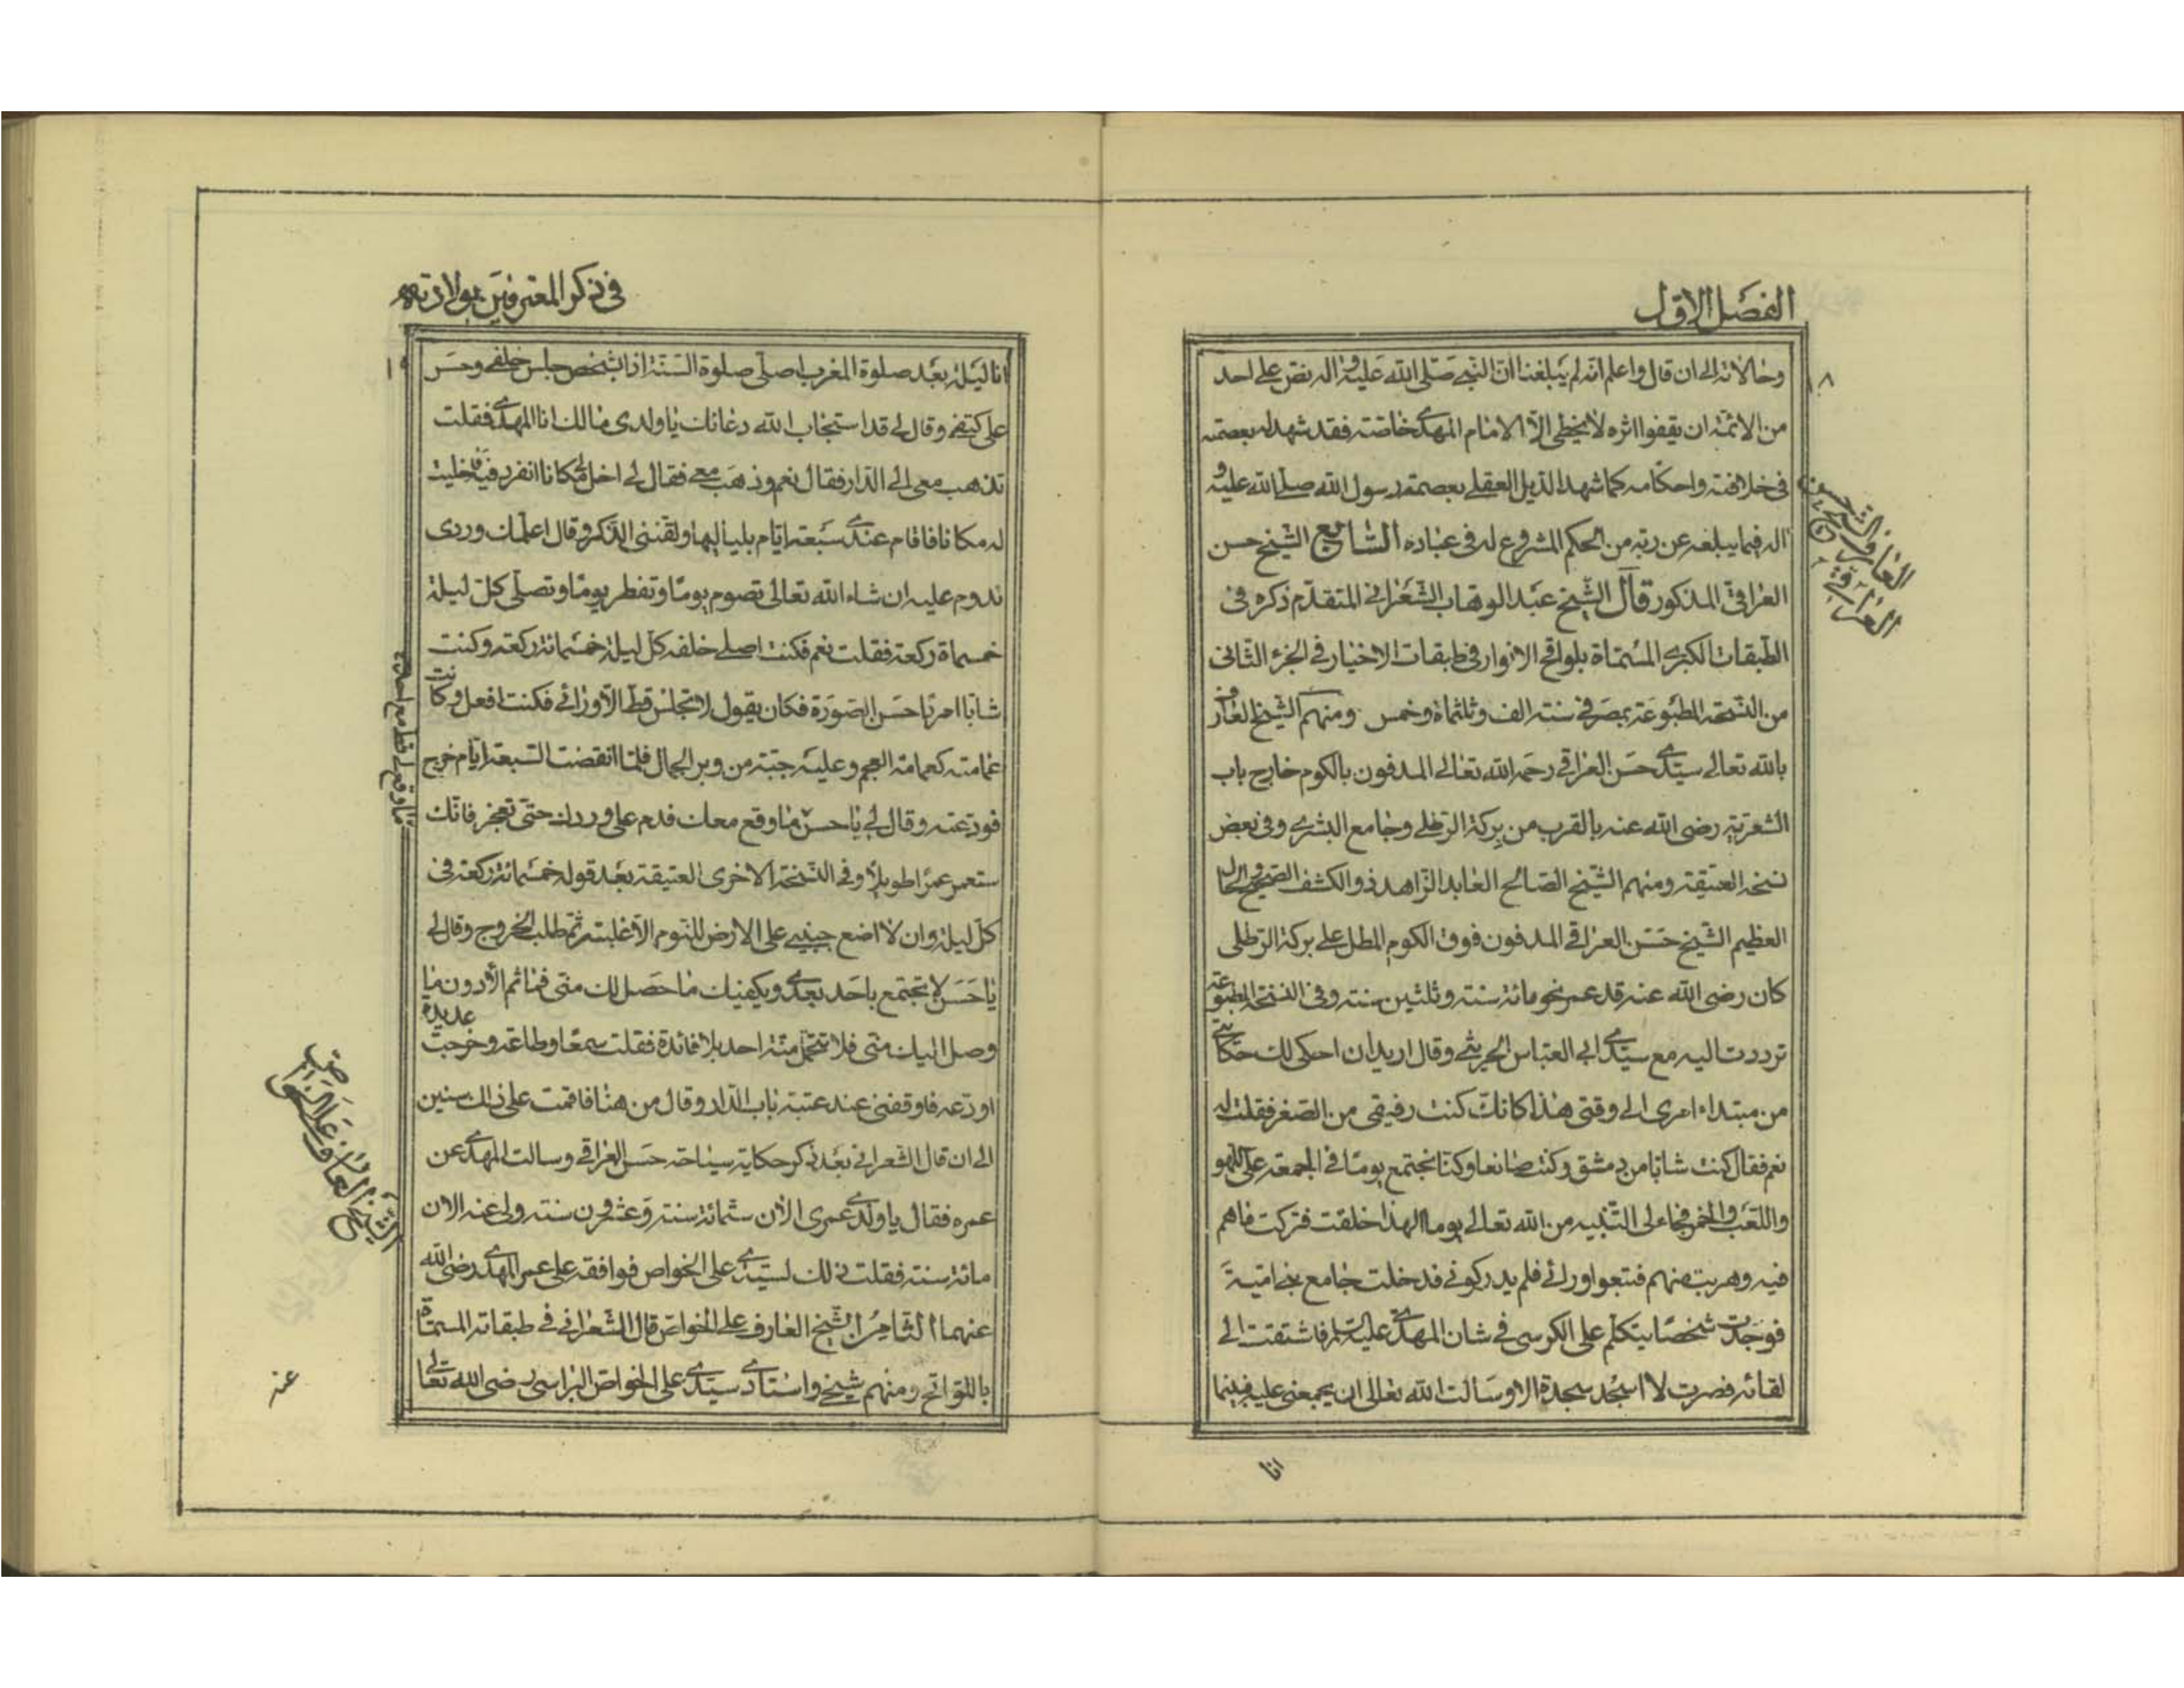 الفصل الاول
١٨
وحالاته الى ان قال واعلم انه لم يبلغنا ان النبي صلى الله عليه واله نص على احد
من الائمة ان يقفوا اثره لا يخطى الا الامام المهدى خاصة فقد شهد له بعصمته
فى خلافته واحكامه كما شهد الدليل العقلى بعصمة رسول الله صلى الله عليه و
اله فيما يبلغه عن ربه من الحكم المشروع له فى عباده السابع الشيخ حسن
العراقى المذكور قال الشيخ عبد الوهاب الشعرانى المتقدم ذكره فى
الطبقات الكبرى المسماة بلواقح الانوار فى طبقات الاخيار فى الجزء الثانى
من النسخة المطبوعة بمصر فى سنة الف وثلثماة وخمس ومنهم الشيخ العارف
بالله تعالى سيدى حسن العراقى رحمه الله تعالى المدفون بالكوم خارج باب
الشعرية رضى الله عنه بالقرب من بركة الرطلى وجامع البشرى وفى بعض
نسخه العتيقة ومنهم الشيخ الصالح العابد الزاهد ذو الكشف الصحيح والحال
العظيم الشيخ حسن العراقى المدفون فوق الكوم المطل على بركة الرطلى
كان رضى الله عنه قد عمر نحو مائة سنة وثلثين سنة وفى النسخة المطبوعة
ترددت اليه مع سيدى ابى العباس الحريثى وقال اريد ان احكى لك حكايتى
من مبتداء امرى الى وقتى هذا كانك كنت رفيقى من الصغر فقلت له
نعم فقال كنت شابا من دمشق وكنت صانعا وكنا نجتمع يوما فى الجمعة على اللهو
واللعب والخمر فجاءلى التنبيه من الله تعالى يوما الهذا خلقت فتركت ماهم
فيه وهربت منهم فتبعوا ورائى فلم يدركونى فدخلت جامع بنى امية
فوجدت شخصا يتكلم على الكرسى فى شان المهدى عليه السلم فاشتقت الى
لقائه فصرت لا اسجد سجدة الا وسالت الله تعالى ان يجمعنى عليه فبينما
انا
العارف الشيخ حسن
العراقى
فى ذكر المعترفين بولادته
١٩
انا ليلة بعد صلوة المغرب اصلى صلوة السنة اذا بشخص جلس خلفى وحس
على كتفى وقال لى قد استجاب الله دعائك يا ولدى مالك انا المهدى فقلت
تذهب معى الى الدار فقال نعم وذهب معى فقال لى اخل لى مكانا انفرد فيه فاخليت
له مكانا فاقام عندى سبعة ايام بلياليها ولقننى الذكر وقال اعلمك وردى
تدوم عليه ان شاء الله تعالى تصوم يوما وتفطر يوما وتصلى كل ليلة
خمسماة ركعة فقلت نعم فكنت اصلى خلفه كل ليلة خمسمائة ركعة وكنت
شابا امردا حسن الصورة فكان يقول لا تجلس قط الا ورائى فكنت افعل وكانت
عمامته كعمامة العجم وعليه جبة من وبر الجمال فلما انقضت السبعة ايام خرج
فودعته وقال لى يا حسن ما وقع معك فدم على وردك حتى تعجز فانك
ستعمر عمرا طويلا وفى النسخة الاخرى العتيقة بعد قوله خمسمائة ركعة فى
كل ليلة وان لا اضع جنبى على الارض للنوم الا غلبة ثم طلب الخروج وقال لى
يا حسن لا تجتمع باحد بعدى ويكفيك ما حصل لك منى فما ثم الا دون ما
وصل اليك منى فلا تتحمل منة احد بلا فائدة فقلت سمعا وطاعة وخرجت
اودعه فاوقفنى عند عتبة باب الدار وقال من هنا فاقمت على ذلك سنين عديدة
الى ان قال الشعرانى بعد ذكر حكاية سياحة حسن العراقى وسالت المهدى عن
عمره فقال يا ولدى عمرى الان ستمائة سنة وعشرون سنة ولى عنه الان
مائة سنة فقلت ذلك لسيدى على الخواص فوافقه على عمر المهدى رضى الله
عنهما الثامن الشيخ العارف على الخواص قال الشعرانى فى طبقاته المسماة
باللواقح ومنهم شيخى واستادى سيدى على الخواص البراسى رضى الله تعالى
عنه
ما وقع لى قط مع احد
الشيخ العارف على الخواص